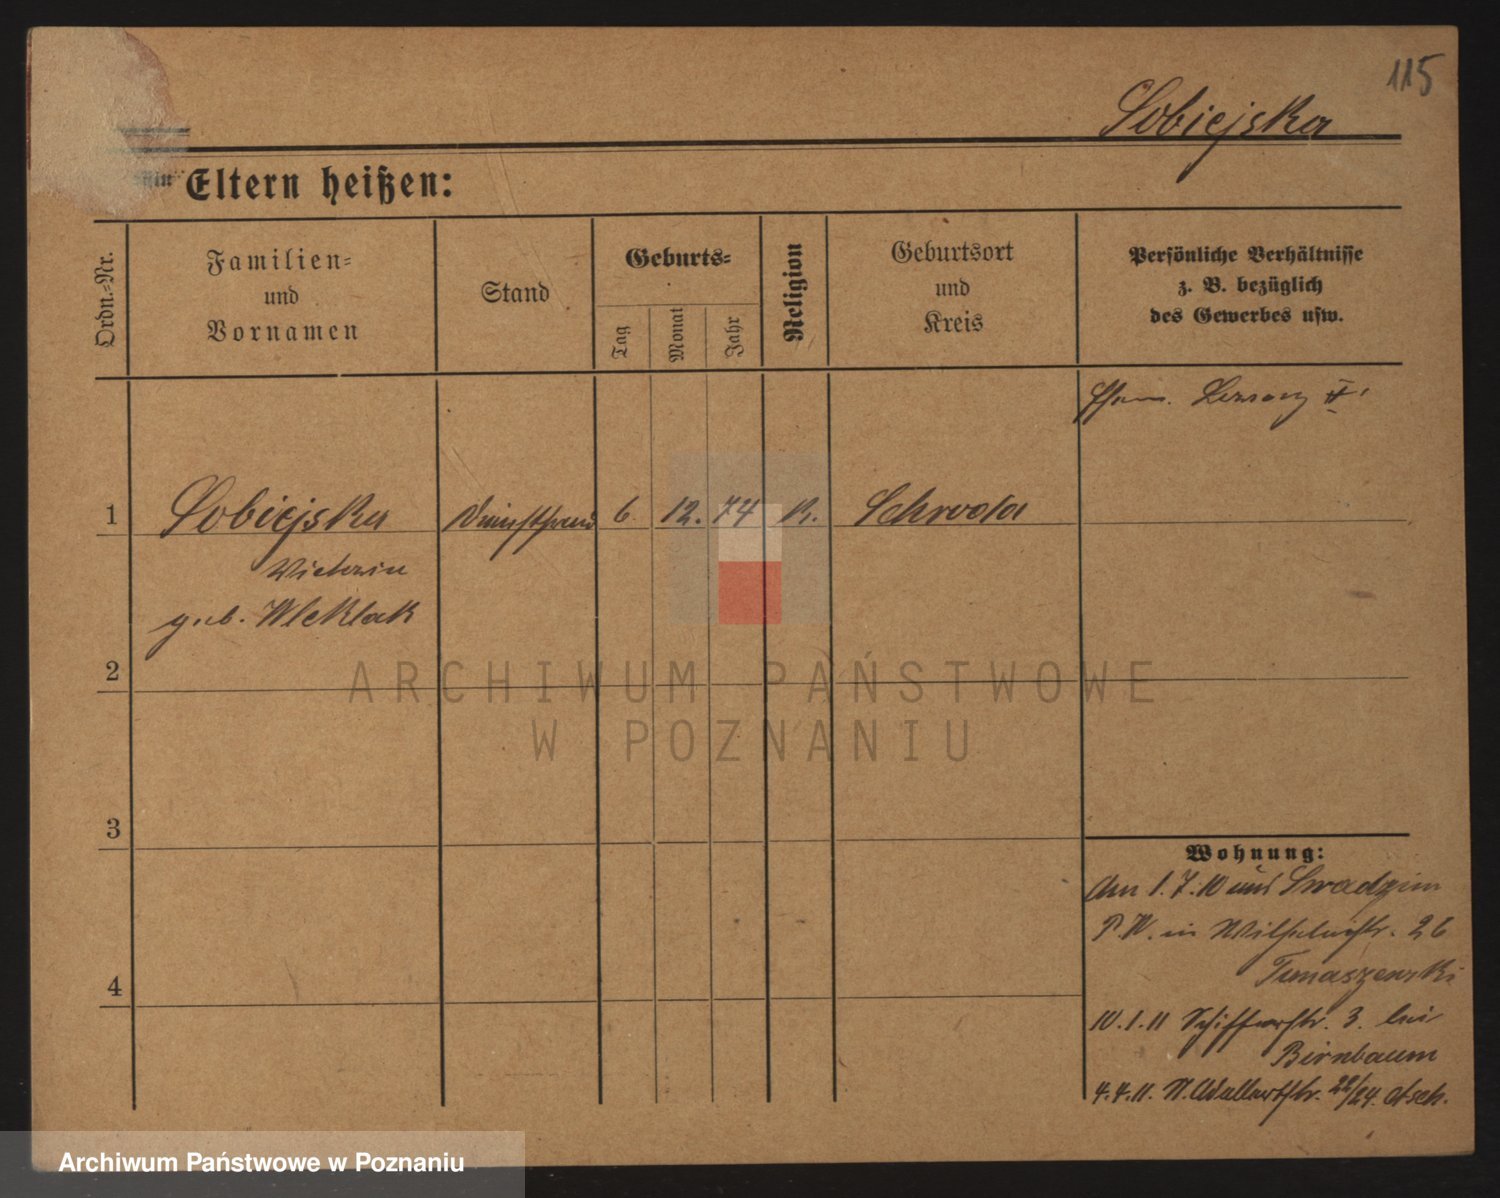 115
Sobiejska
Eltern heißen:
Ordn.-Nr.
Familien-
und
Vornamen
Stand
Geburts-
Tag
Monat
Jahr
Religion
Geburtsort
und
Kreis
Persönliche Verhältnisse
z. B. bezüglich
des Gewerbes usw.
1
Sobiejska
6
12.
74
K.
Schroda
geb. Wleklak
2
3
4
Wohnung:
Am 1.7.10 aus Swadzim
in Wilhelmstr. 26
Tomaszewski
10.1.11 Schifferstr. 3. bei
Birnbaum
4.4.11. N. Adalbertstr. 22/24.
ARCHIWUM PAŃSTWOWE
W POZNANIU
Archiwum Państwowe w Poznaniu